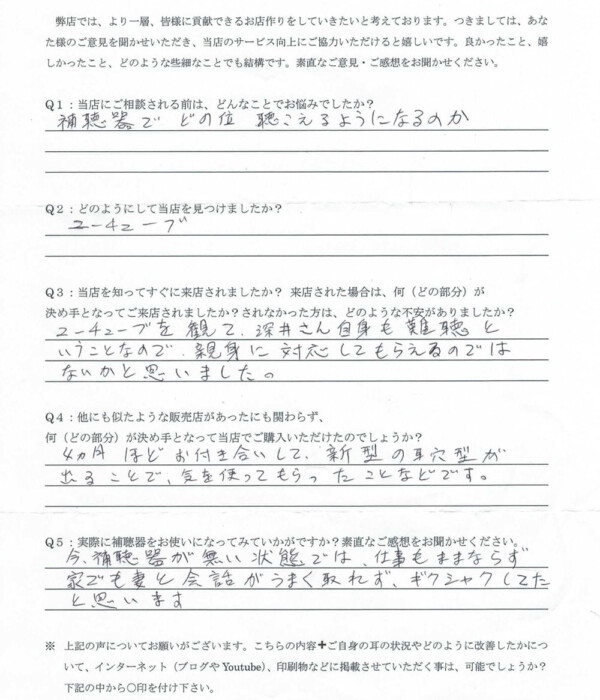 弊店では、より一層、皆様に貢献できるお店作りをしていきたいと考えております。つきましては、あな
た様のご意見を聞かせいただき、当店のサービス向上にご協力いただけると嬉しいです。良かったこと、嬉
しかったこと、どのような些細なことでも結構です。素直なご意見・ご感想をお聞かせください。
Q1：当店にご相談される前は、どんなことでお悩みでしたか？
補聴器で どの位 聴こえるようになるのか
Q2：どのようにして当店を見つけましたか？
ユーチューブ
Q3：当店を知ってすぐに来店されましたか？ 来店された場合は、何（どの部分）が
決め手となってご来店されましたか？されなかった方は、どのような不安がありましたか？
ユーチューブを 観て、深井さん自身も難聴と
いうことなので、親身に対応してもらえるのでは
ないかと思いました。
Q4：他にも似たような販売店があったにも関わらず、
何（どの部分）が決め手となって当店でご購入いただけたのでしょうか？
4ヵ月 ほど お付き合いして、新型の耳穴型が
出ることで、気を使ってもらったことなどです。
Q5：実際に補聴器をお使いになってみていかがですか？素直なご感想をお聞かせください。
今、補聴器が無い状態では、仕事もままならず
家でも妻と会話がうまく取れず、ギクシャクしてた
と思います
※ 上記の声についてお願いがございます。こちらの内容＋ご自身の耳の状況やどのように改善したかにつ
いて、インターネット（ブログや Youtube）、印刷物などに掲載させていただく事は、可能でしょうか？
下記の中から〇印を付け下さい。